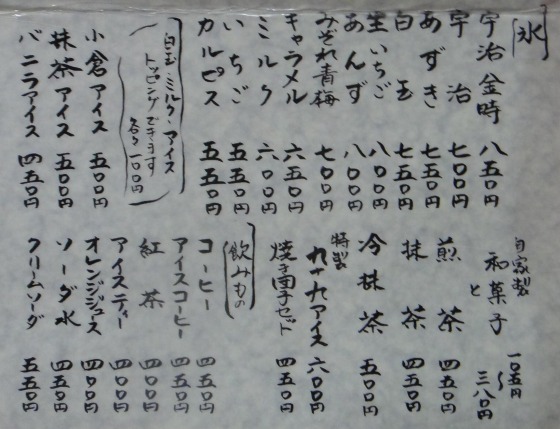 氷
宇治金時 八五〇円
宇治 七〇〇円
あずき 七五〇円
白玉 七五〇円
生いちご 八〇〇円
あんず 八〇〇円
みぞれ青梅 七〇〇円
キャラメル 六五〇円
ミルク 六〇〇円
いちご 五五〇円
カルピス 五五〇円
白玉・ミルク・アイス
トッピングできます
各々一〇〇円
小倉アイス 五〇〇円
抹茶アイス 五〇〇円
バニラアイス 四五〇円
自家製
和菓子 一〇五円
と 〜三八〇円
煎茶 四五〇円
抹茶 四五〇円
冷抹茶 五〇〇円
特製
九十九アイス 六〇〇円
焼き団子セット 四五〇円
飲みもの
コーヒー 四五〇円
アイスコーヒー 四五〇円
紅茶 四〇〇円
アイスティー 四〇〇円
オレンジジュース 四〇〇円
ソーダ水 四五〇円
クリームソーダ 五五〇円